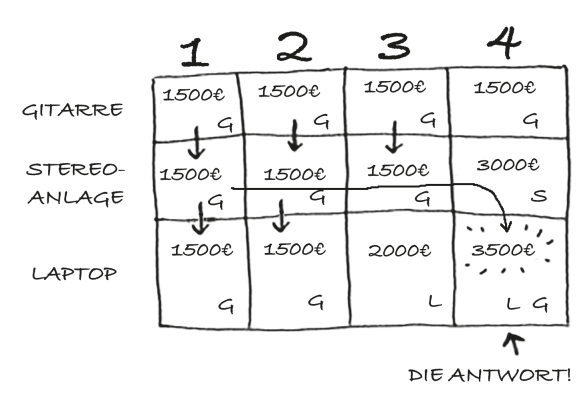 1 2 3 4
GITARRE 1500€ G 1500€ G 1500€ G 1500€ G
STEREO-
ANLAGE 1500€ G 1500€ G 1500€ G 3000€ S
LAPTOP 1500€ G 1500€ G 2000€ L 3500€ L G
DIE ANTWORT!